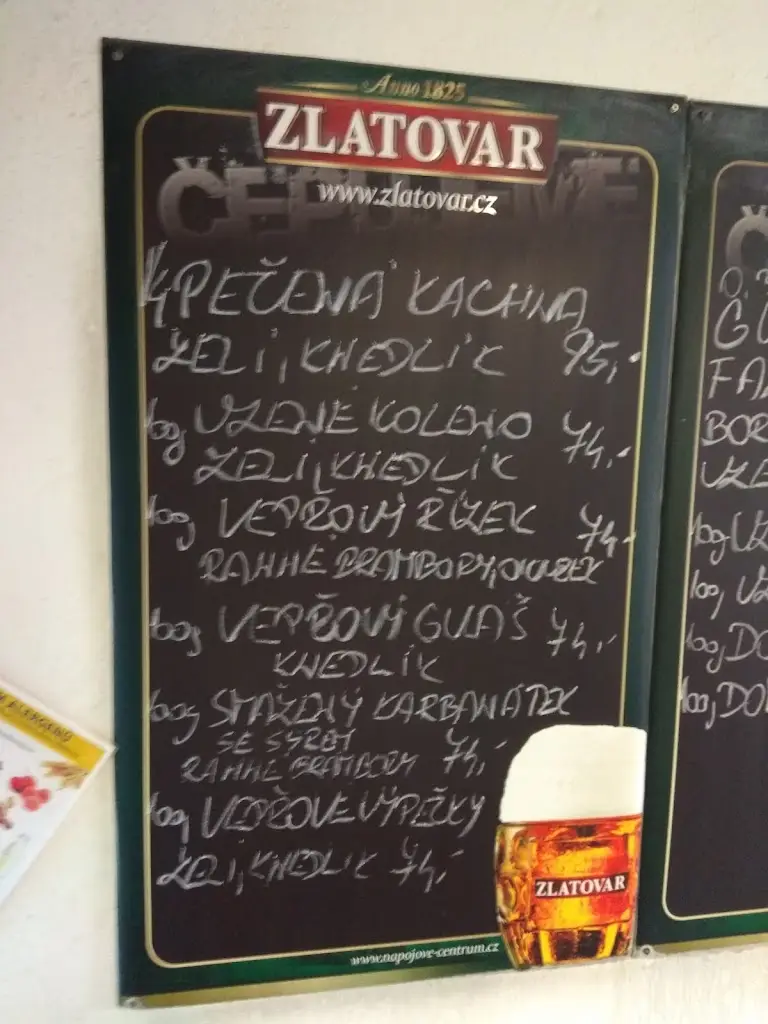 Anno 1825
ZLATOVAR
www.zlatovar.cz
ČEPUJEME
1/4 PEČENÁ KACHNA
ZELÍ, KNEDLÍK 95,-
100g UZENÉ KOLENO 74,-
ZELÍ, KNEDLÍK
100g VEPŘOVÝ ŘÍZEK 74,-
RANNÉ BRAMBORY, OKUREK
100g VEPŘOVÝ GULÁŠ 74,-
KNEDLÍK
100g SMAŽENÝ KARBANÁTEK
SE SÝREM 74,-
RANNÉ BRAMBORY
100g VEPŘOVÉ VÝPEČKY
ZELÍ, KNEDLÍK 74,-
ZLATOVAR
www.napojove-centrum.cz
Č
GU
FA
BOR
UZE
100g UZ
100g UZ
100g DO
100g DO